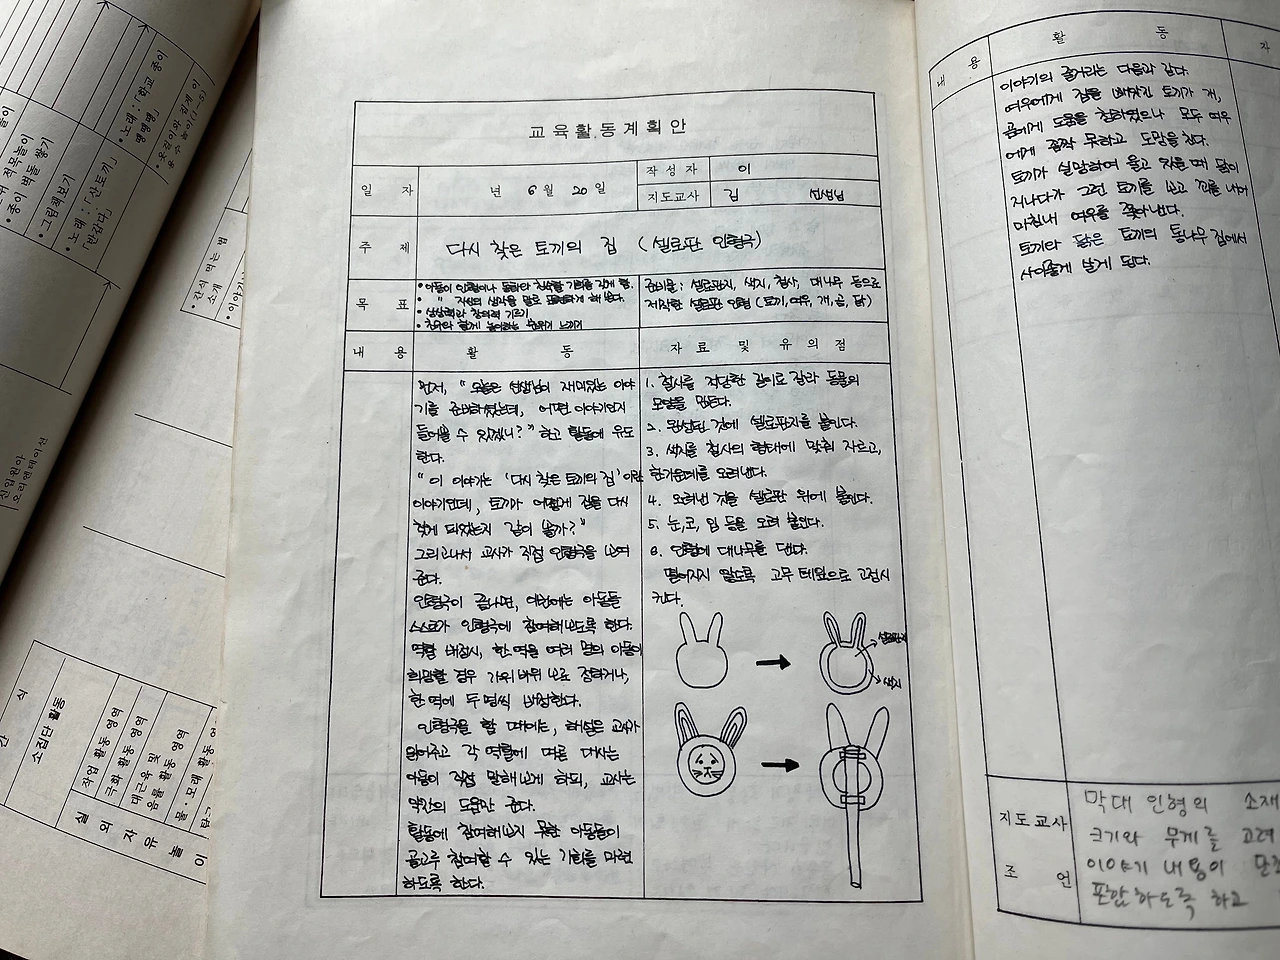 놀이
적목놀이
• 종이 벽돌 쌓기
• 그림책보기
• 노래 : 「산토끼」
「반갑다」
• 노래 : 「학교 종이
땡땡땡」
• 간식 먹는 법
소개
• 이야기
신입원아
오리엔테이션
간 식
소집단 활동
실 외 자 유 놀 이
작업 활동 영역
극화 활동 영역
대근육 및
음률 활동 영역
물·모래 활동 영역
교육활동계획안
일 자
년 6월 20일
작 성 자
이
지도교사
김 선생님
주 제
다시 찾은 토끼의 집 (셀로판 인형극)
목 표
• 상상력과 창의력 기르기
준비물 : 셀로판지, 색지, 철사, 대나무 등으로
제작한 셀로판 인형 (토끼, 여우, 개, 곰, 닭)
내 용
활 동
자 료 및 유 의 점
먼저, " 오늘은 선생님이 재미있는 이야
기를 준비하였는데, 어떤 이야기인지
들어볼 수 있겠니?" 하고 활동에 유도
한다.
" 이 이야기는 '다시 찾은 토끼의 집'이란
이야기인데, 토끼가 어떻게 집을 다시
찾게 되었는지 같이 볼까?"
그리고나서 교사가 직접 인형극을 보여
준다.
인형극이 끝나면, 이번에는 아동들
스스로가 인형극에 참여해보도록 한다.
역할 배정시, 한 역을 여러 명의 아동이
희망할 경우 가위바위보로 정하거나,
한 역에 두 명씩 배정한다.
인형극을 할 때에는, 해설은 교사가
읽어주고 각 역할에 따른 대사는
아동이 직접 말해보게 하되, 교사는
약간의 도움만 준다.
활동에 참여해보지 못한 아동들이
골고루 참여할 수 있는 기회를 마련
하도록 한다.
1. 철사를 적당한 길이로 잘라 동물의
모양을 만든다.
2. 완성된 것에 셀로판지를 붙인다.
3. 색지를 철사의 형태에 맞춰 자르고,
한가운데를 오려낸다.
4. 오려낸 것을 셀로판 위에 붙인다.
5. 눈, 코, 입 등을 오려 붙인다.
6. 인형에 대나무를 댄다.
떨어지지 않도록 고무 테잎으로 고정시
킨다.
셀로판지
색지
내 용
활 동
자
이야기의 줄거리는 다음과 같다.
여우에게 집을 빼앗긴 토끼가 개,
곰에게 도움을 청하였으나 모두 여우
에게 꼼짝 못하고 도망을 친다.
토끼가 실망하여 울고 있을 때 닭이
지나다가 그런 토끼를 보고 꾀를 내어
마침내 여우를 쫓아낸다.
토끼와 닭은 토끼의 통나무 집에서
사이좋게 살게 된다.
지도교사
조 언
막대 인형의 소재
크기와 무게를 고려
이야기 내용이 단
포함하도록 하고